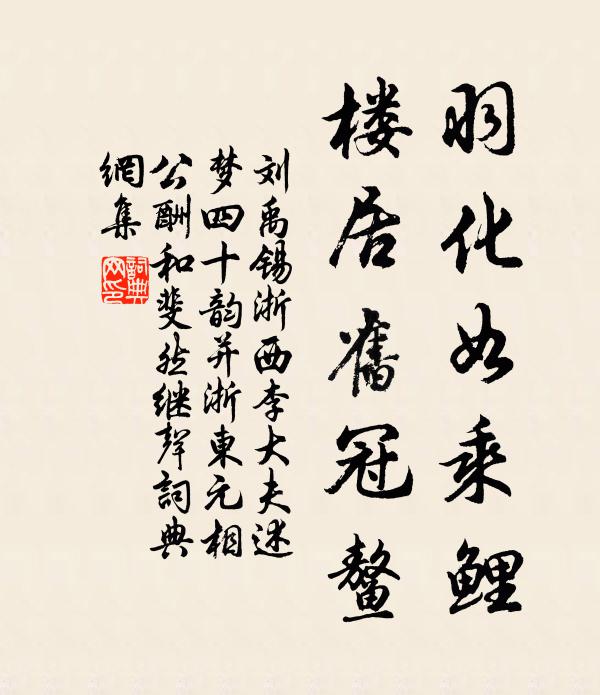 羽化如乘鲤
楼居舊冠鳌
刘禹锡浙西李大夫述
梦四十韵并浙東元相
公酬和斐然继聲詞典
網集
詞典網印